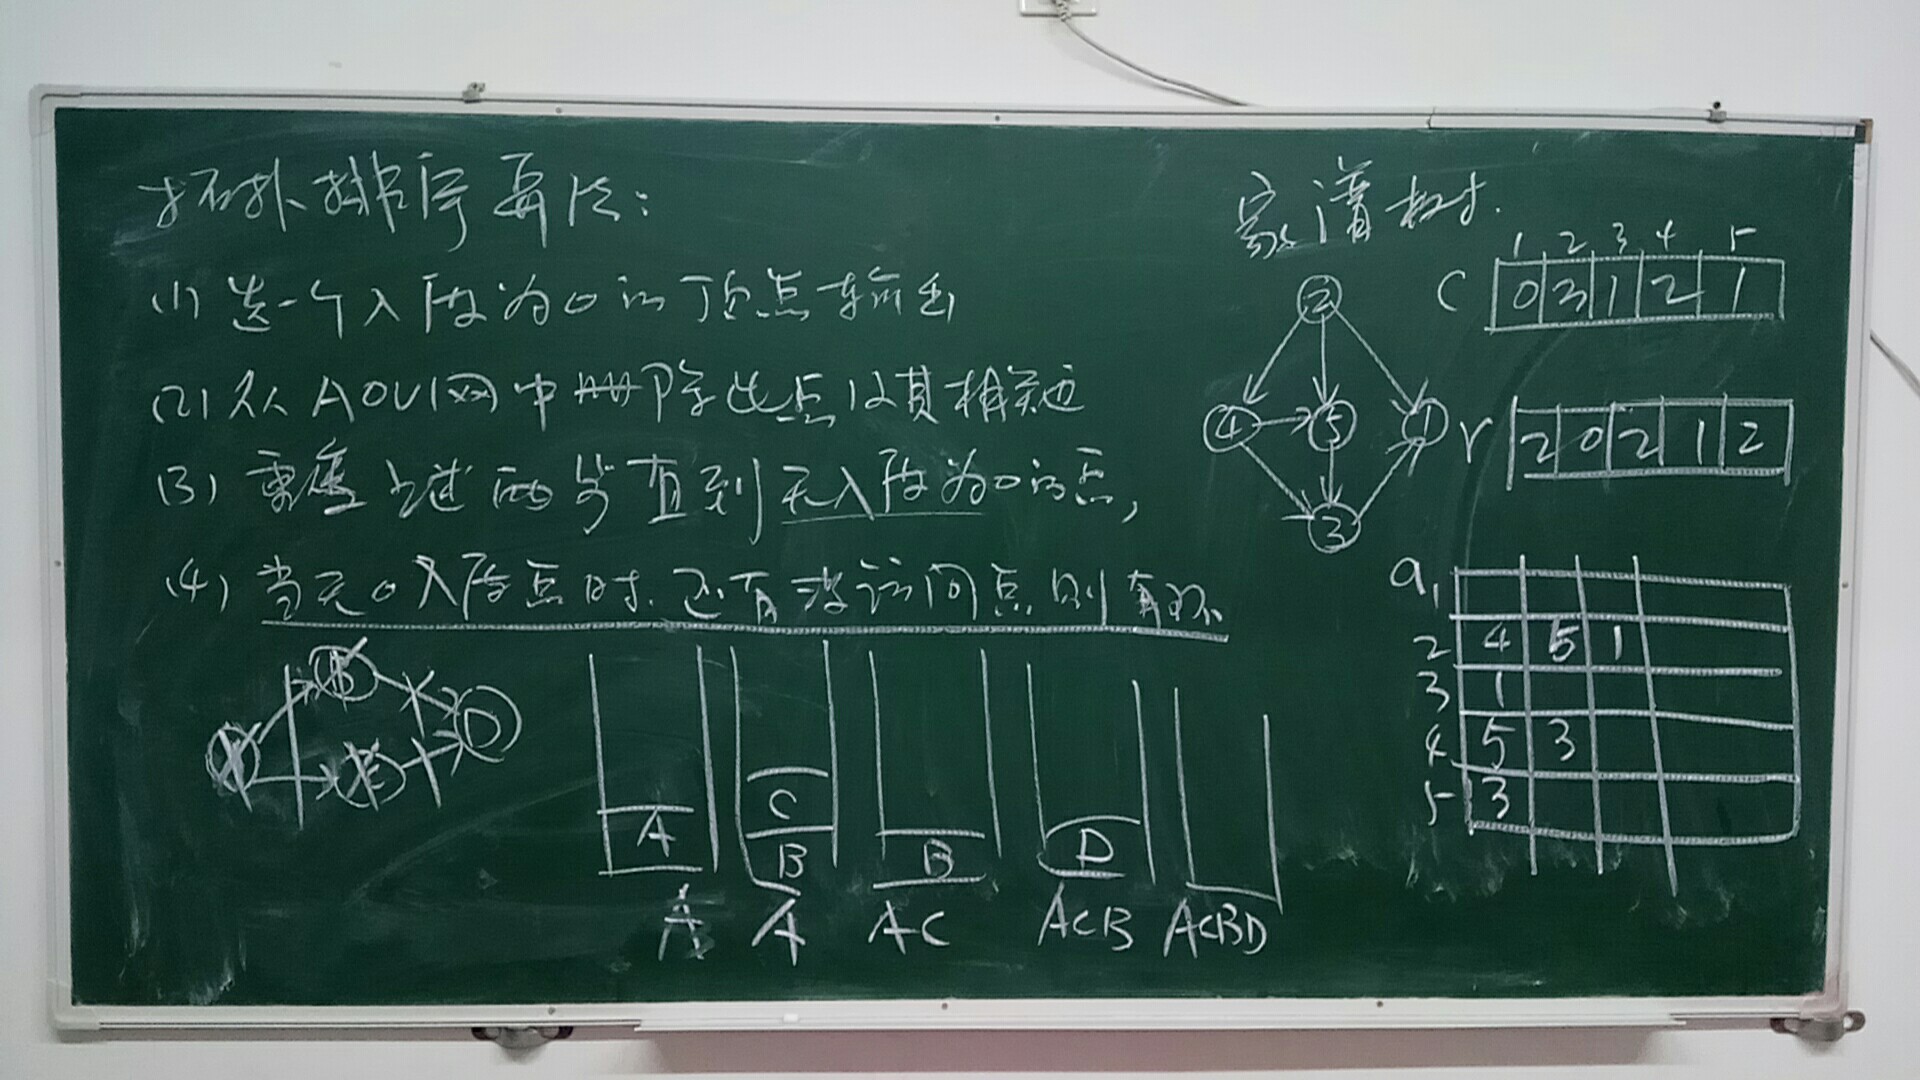 拓扑排序算法:
(1) 选一个入度为0的顶点输出
(2) 从AOV网中删除此点及其相关边
(3) 重复上述两步直到无入度为0的点,
(4) 当无0入度点时.还有没访问点则有环
B
D
A
C
A
C
B
B
D
A
A
AC
ACB
ACBD
家谱树.
2
4
5
1
3
1 2 3 4 5
C 0 3 1 2 1
r 2 0 2 1 2
a
1
2 4 5 1
3 1
4 5 3
5 3